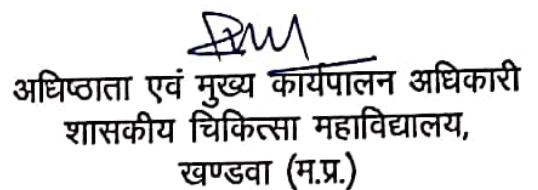 अधिष्ठाता एवं मुख्य कार्यपालन अधिकारी
शासकीय चिकित्सा महाविद्यालय,
खण्डवा (म.प्र.)